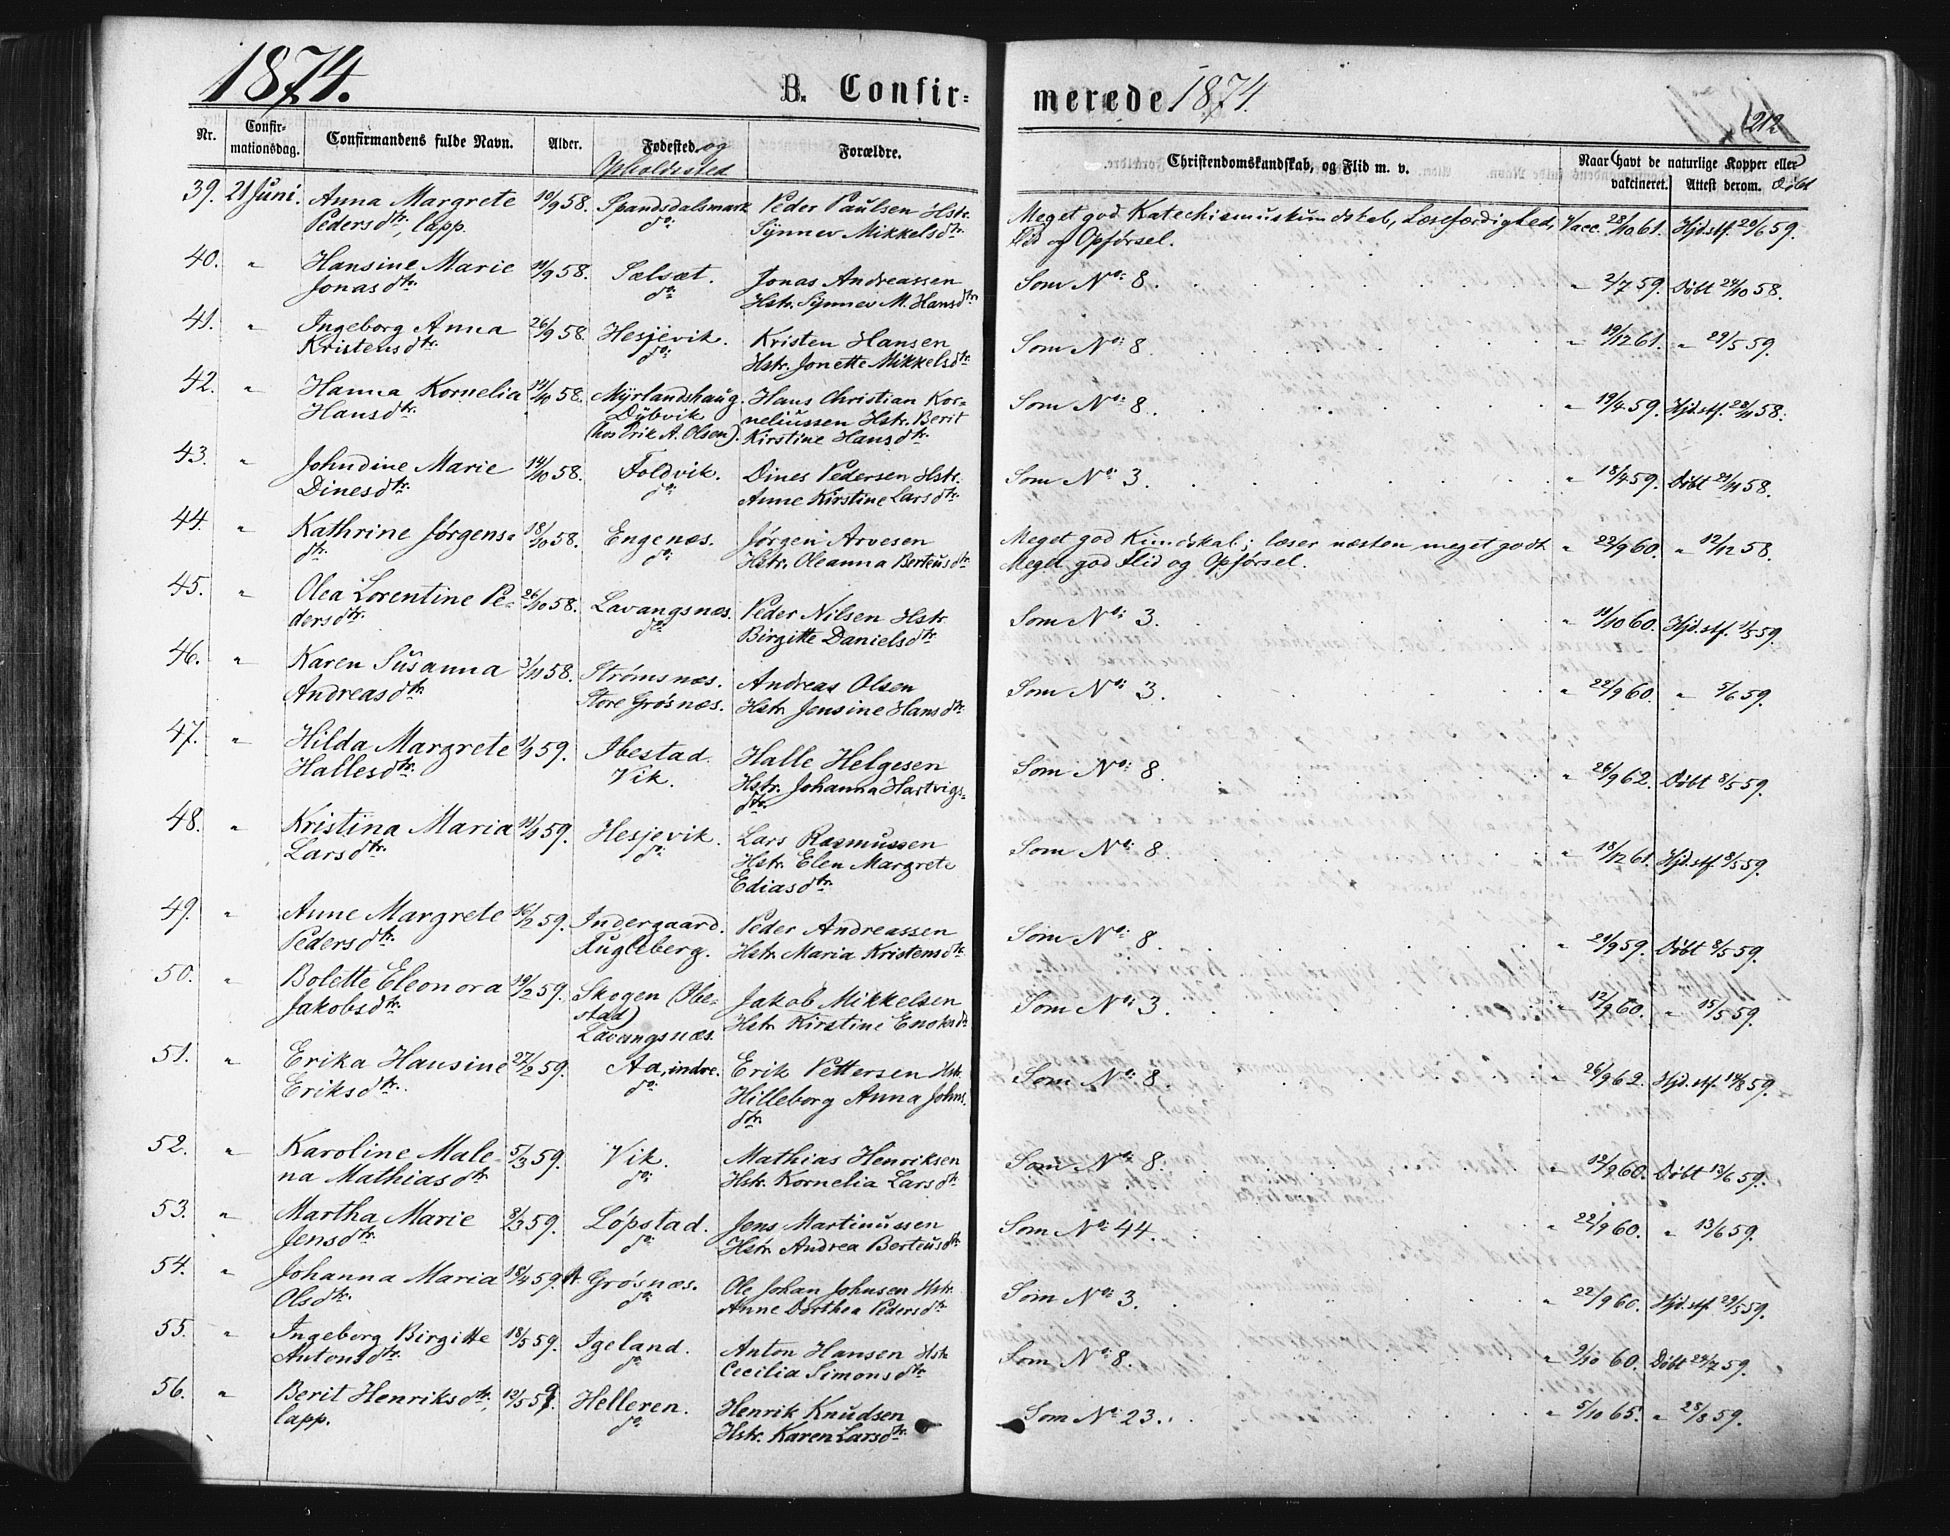 1874.
B. Confir-
merede 1874.
212
Nr.
Confir-
mationsdag.
Confirmandens fulde Navn.
Alder.
Fødested og
Opholdssted
Forældre.
Christendomskundskab, og Flid m. v.
Naar havt de naturlige Kopper eller
vakcineret.
Attest derom. Døbt
39. 21 Juni. Anna Margrete 10/9 58. Spandsdalsmark Peder Paulsen Hstr.
Pedersdtr., lapp. do Synnev Mikkelsdtr.
Meget god Katechismuskundskab, Læsefærdighed, Vacc. 28/10 61. Hjd.stf. 20/6 59.
Flid og Opførsel.
40. " Hansine Marie 11/9 58. Sælsæt. Jonas Andreassen
Jonasdtr. do Hstr. Synnev M. Hansdtr.
Som No: 8. " 2/7 59. Døbt 24/10 58.
41. " Ingeborg Anna 26/9 58. Hesjevik. Kristen Hansen
Kristensdtr. do: Hstr. Jonette Mikkelsdtr.
Som No: 8. " 19/12 61. " 29/5 59.
42. " Hanna Kornelia 14/10 58. Myrlandshaug. Hans Christian Kor-
Hansdtr. Dybvik neliussen Hstr. Berit
(hos Erik A. Olsen). Kirstine Hansdtr.
Som No: 8. " 19/4 59. Hjd.stf. 28/11 58.
43. " Johndine Marie 14/10 58. Foldvik. Dines Pedersen Hstr.
Dinesdtr. do: Anne Kirstine Larsdtr.
Som No: 3. " 18/4 59. Døbt 21/11 58.
44. " Kathrine Jørgens- 18/10 58. Engenæs. Jørgen Arvesen
dtr. do: Hstr. Oleanna Berteusdtr.
Meget god Kundskab; læser næsten meget godt " 22/9 60. " 12/12 58.
Meget god Flid og Opførsel.
45. " Olea Lorentine Pe- 26/10 58. Lavangsnæs. Peder Nilsen Hstr.
dersdtr. do Birgitte Danielsdtr.
Som No: 3. " 11/10 60. Hjd.stf. 1/5 59.
46. " Karen Susanna 3/11 58. Strømsnæs. Andreas Olsen
Andreasdtr. Store Grøsnæs. Hstr. Jensine Hansdtr.
Som No: 3. " 22/9 60. " 5/6 59.
47. " Hilda Margrete 1/1 59. Ibestad. Halle Helgesen
Hallesdtr. Vik. Hstr. Johanna Hartvigs-
dtr.
Som No: 8. " 26/9 62. Døbt 8/5 59.
48. " Kristina Maria 11/1 59. Hesjevik. Lars Rasmussen
Larsdtr. do: Hstr. Elen Margrete
Ediasdtr.
Som No: 8. " 18/12 61. Hjd.stf. 8/5 59.
49. " Anne Margrete 16/2 59. Indergaard. Peder Andreassen
Pedersdtr. Fugleberg. Hstr. Maria Kristensdtr.
Som No: 8. " 21/9 59. Døbt 8/5 59.
50. " Bolette Eleonora 19/2 59. Skogen (Ibe- Jakob Mikkelsen
Jakobsdtr. stad) Hstr. Kirstine Enoksdtr.
Lavangsnæs.
Som No: 3. " 12/9 60. " 15/5 59.
51. " Erika Hansine 27/2 59. Aa, indre. Erik Pettersen Hstr.
Eriksdtr. do: Hilleborg Anna Johns-
dtr.
Som No: 8. " 26/9 62. Hjd.stf. 14/8 59.
52. " Karoline Male- 5/3 59. Vik. Mathias Henriksen
na Mathiasdtr. do: Hstr. Kornelia Larsdtr.
Som No: 8. " 12/9 60. Døbt 13/6 59.
53. " Martha Marie 8/3 59. Løpstad. Jens Martinussen
Jensdtr. do: Hstr. Andrea Berteusdtr.
Som No: 44. " 22/9 60. " 13/6 59.
54. " Johanna Maria 18/4 59. Grøsnæs. Ole Johan Johnsen Hstr.
Olsdtr. do: Anne Dorthea Pedersdtr.
Som No: 3. " 22/9 60. Hjd.stf. 29/5 59.
55. " Ingeborg Birgitte 18/5 59. Igeland. Anton Hansen Hstr.
Antonsdtr. do Cecilia Simonsdtr.
Som No: 8. " 9/10 60. Døbt 24/7 59.
56. " Berit Henriksdtr., 12/5 59. Helleren. Henrik Knudsen
lapp. do: Hstr. Karen Larsdtr.
Som No: 23. " 5/10 65. " 28/8 59.